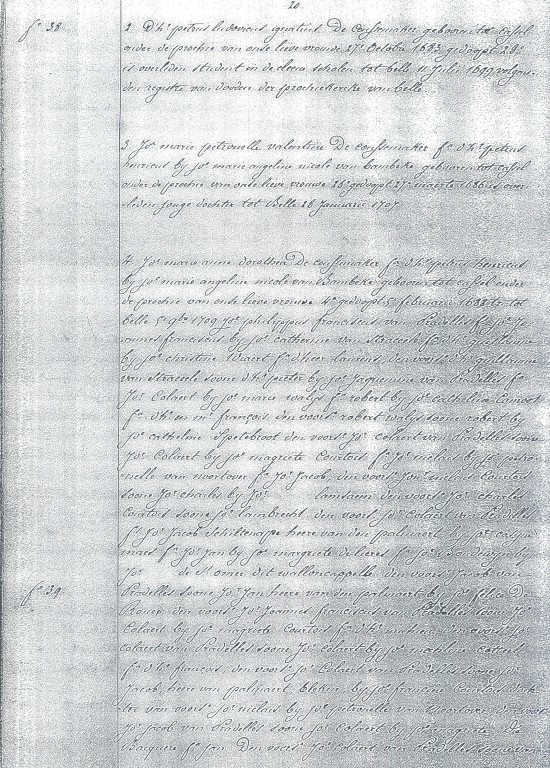 20
f° 38
2 d'hr petrus ludovicus ignatius De Coussemaker geboren tot cassel
onder de prochie van onse lieve vrouwe 27e Octobr 1683 gedoopt 28e
is overleden student in de scholen tot belle 11 Julii 1699 volgens
den registre van dooden der prochiekercke van belle
3 Jor marie petronelle valentine De Coussemaker fa d'hr petrus
henricus by jor marie angeline nicole van Bambeke geboren tot cassel
onder de prochie van onse lieve vrouwe 26e gedoopt 27e maerte 1686 is over
leden jonge dochter tot Belle 28 January 1707
4 Jor marie anne dorothea De Coussemaker fa d'hr petrus henricus
by jor marie angeline nicole van Bambeke geboren tot cassel onder
de prochie van onse lieve vrouwe 4e gedoopt 5 februarii 1688 tr tot
belle 5 9bre 1709 Jor philippus franciscus van Pradelles fs Jor Jo
annes franciscus by jor catherine van Strazeele fa d'hr guillaume
by jor christine Wiaert fa d'heer laureins, den voorsn d'hr guillaume
van Strazeele soone d'hr pieter by jor Jaquemine van Pradelles fa
Jor Colaert by jor marie walys fa robert by jor catheline
fa d'hr en mr françois, den voorsn robert walys soone robert by
jor catheline Spetebroot den voorsn Jor Colaert van Pradelles soone
Jor Colaert by jor magriete Courtois fa Jor melais by jor petro
nelle van noortover fa Jor Jacob, den voorsn Jor melais Courtois
soone Jor charles by Jor lansaem den voorsn Jor charles
Courtois soone Jor lambrecht, den voorsn Jor Colaert van Pradelles
fs Jor Jacob Schiltenape heere van den palmaert by jor
maes fa Jor Jan by jor margriete de lieres fa Jor
Jor de St omer dit walloncappelle, den voorsn Jacob van
f° 39
Pradelles soone Jor Jan heere van den palmaert by jor felice De
den voorsn Jor Joannes franciscus van Pradelles soone Jor
Colaert by jor magriete Courtois fa d'hr mahieu, den voorsn jor
colaert van Pradelles soone Jor colaert by jor matheline
fa d'hr françois, den voorsn Jor Colaert van Pradelles soone Jor
Jacob, heere van palmaert, by jor francine Courtois doch
ter van voorsn Jor melais by jor petronelle van Noortover den voorsn
Jor Jacob van Pradelles soone Jor Colaert by jor magriete De
Baequere fa Jan den voorsn Jor Colaert van Pradelles soone van